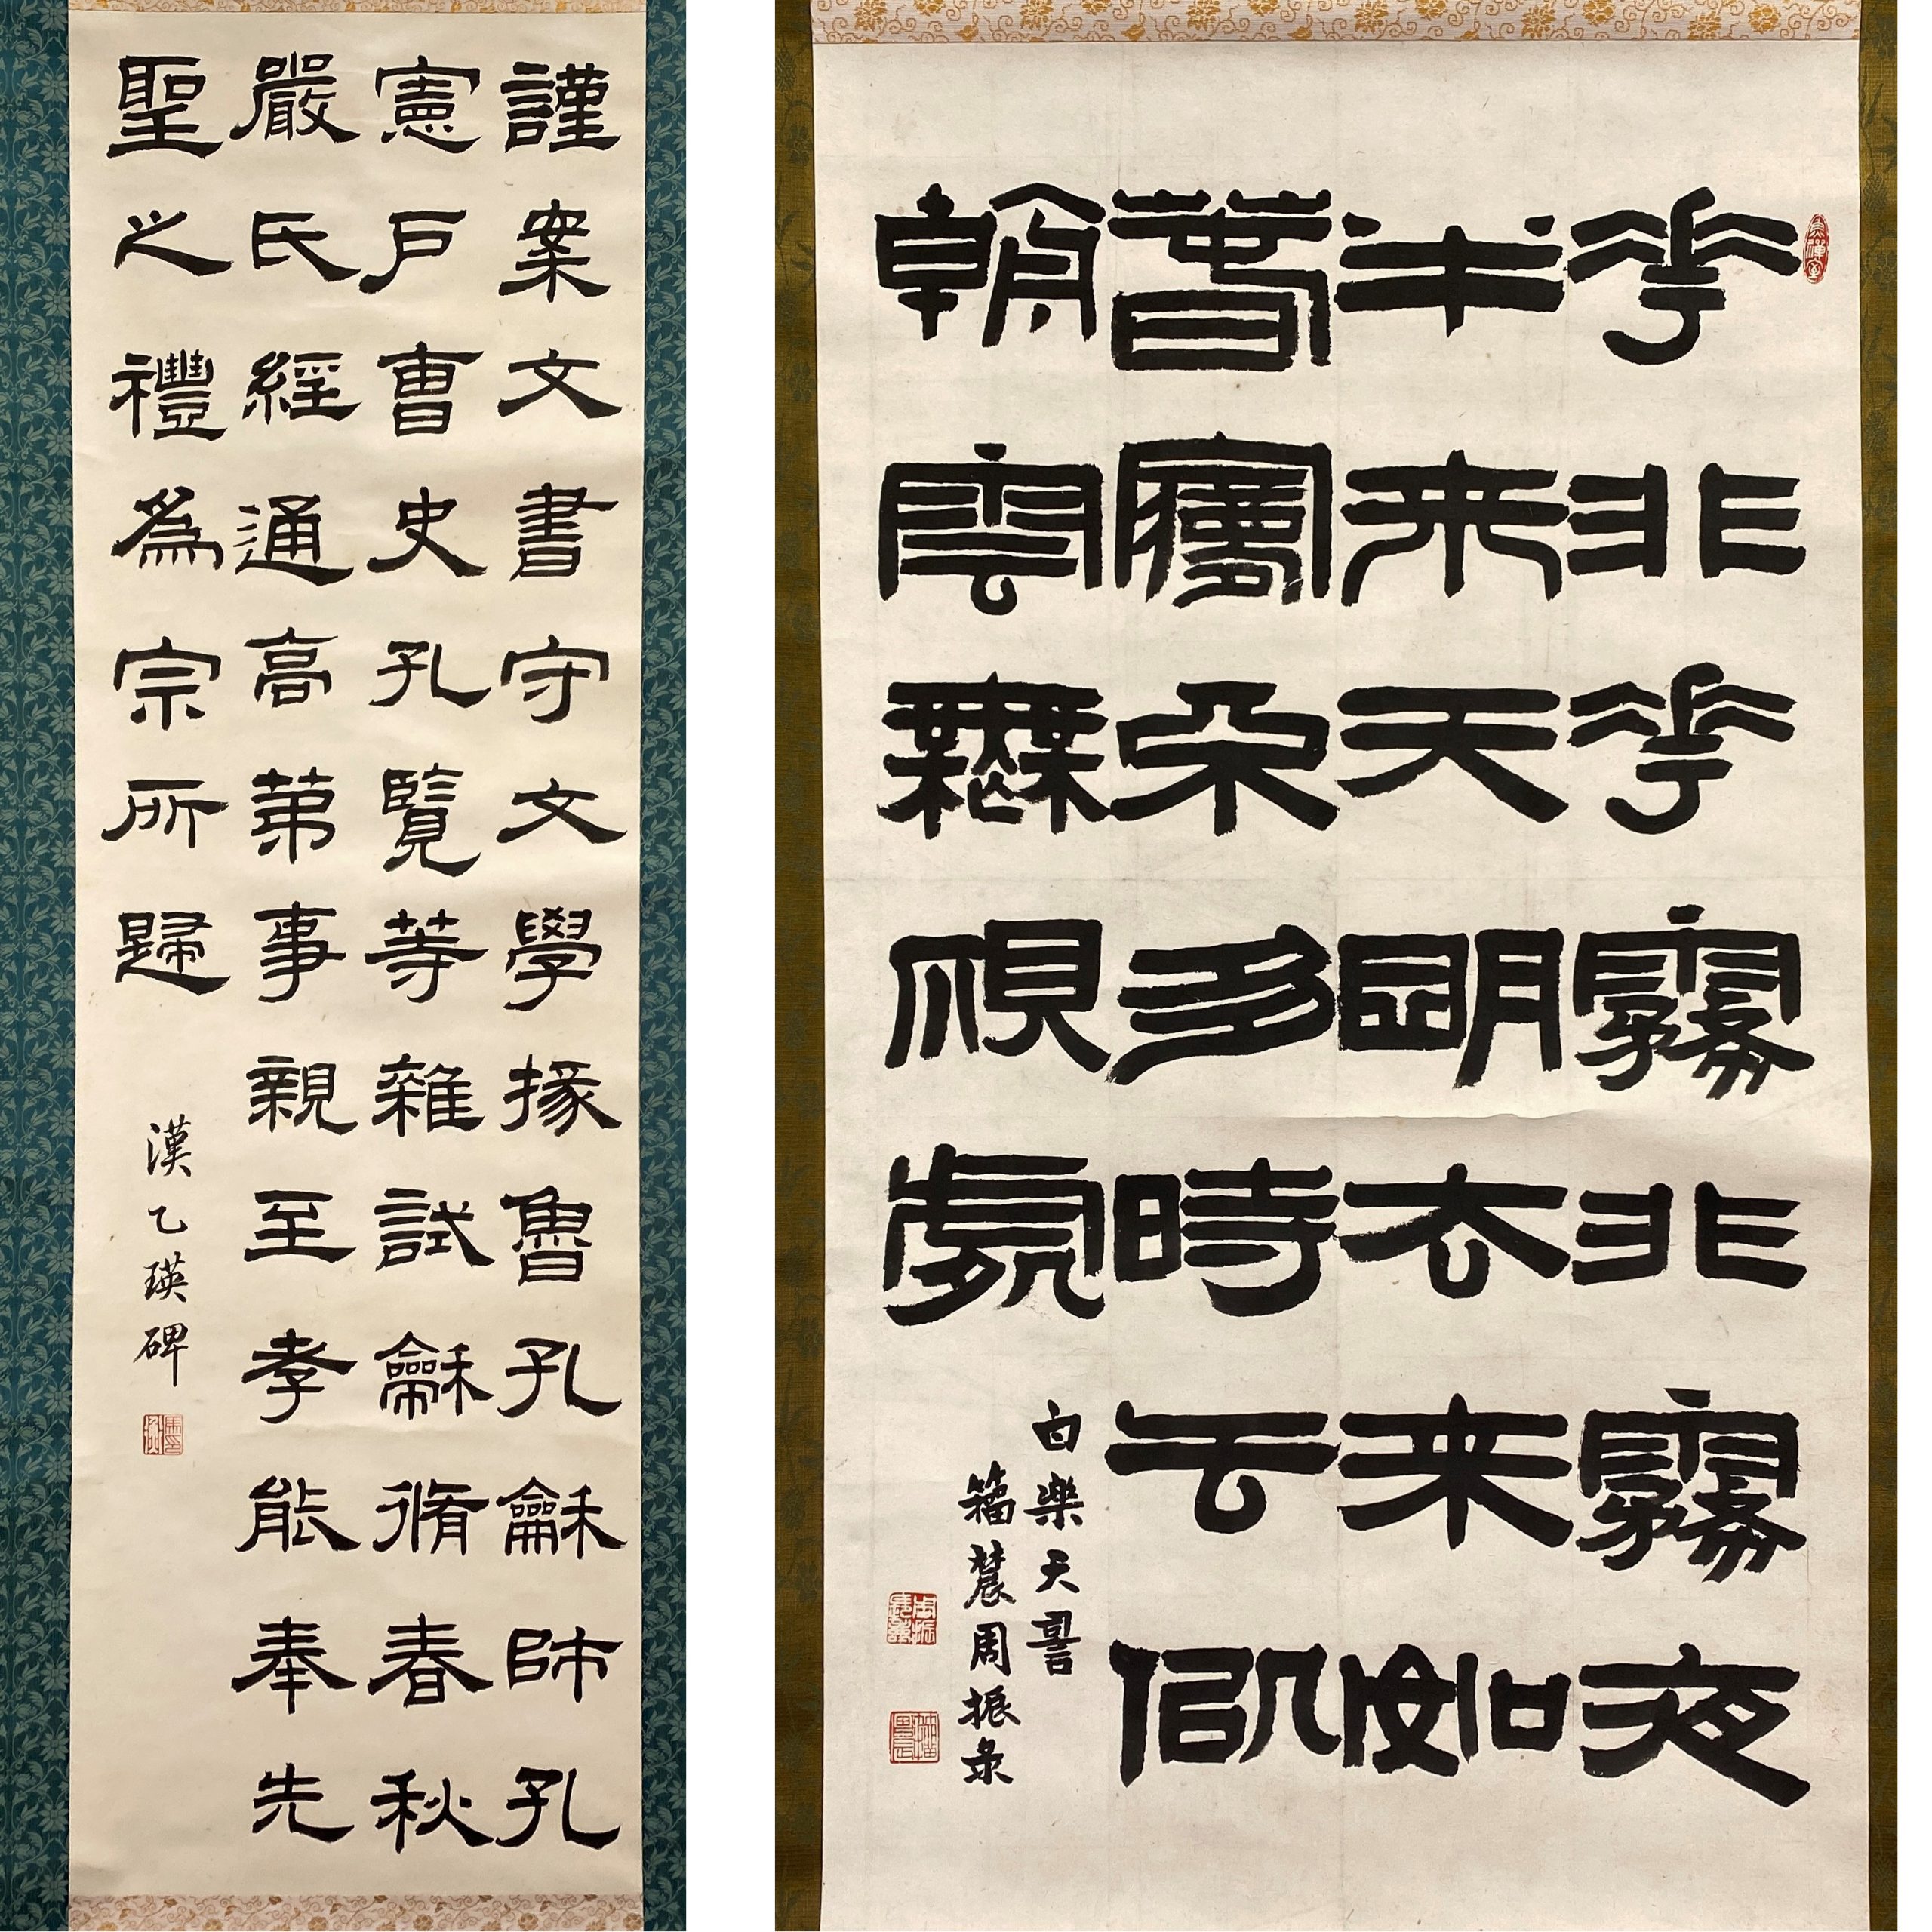 謹案文書守文學掾魯孔龢師孔
憲戶曹史孔覽等雜試龢脩春秋
嚴氏經通高第事親至孝能奉先
聖之禮為宗所歸
漢乙瑛碑
花非花霧非霧夜
半来天明去来如
春夢朵多時去似
朝雲無覛處
白楽天詞
籀農周振录